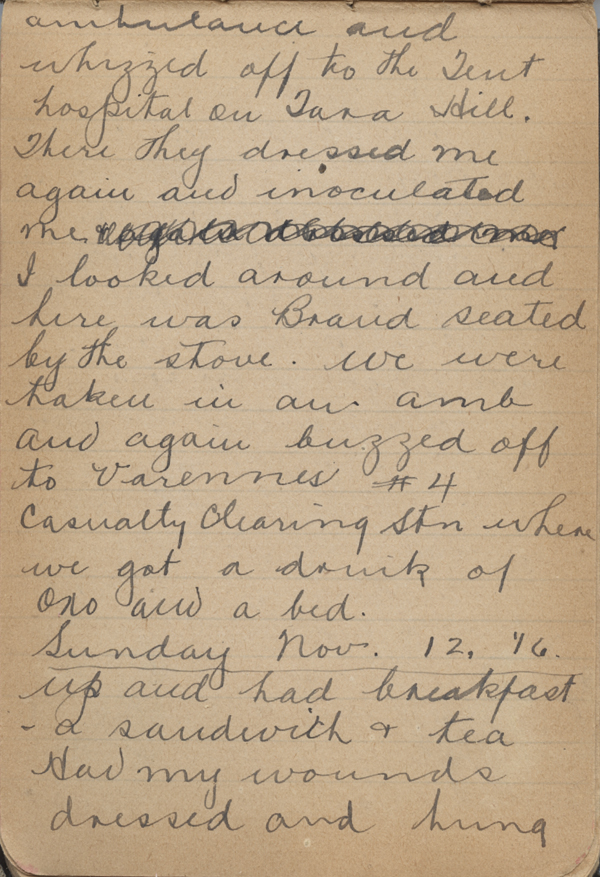 ambulance and
whizzed off to the Tent
hospital on Tara Hill.
There they dressed me
again and inoculated
me.
I looked around and
here was Brand seated
by the stove. We were
taken in an amb
and again buzzed off
to Varennes #4
Casualty Clearing Stn where
we got a drink of
Oxo and a bed.
Sunday Nov. 12, '16.
up and had breakfast
- a sandwich & tea
Had my wounds
dressed and hung